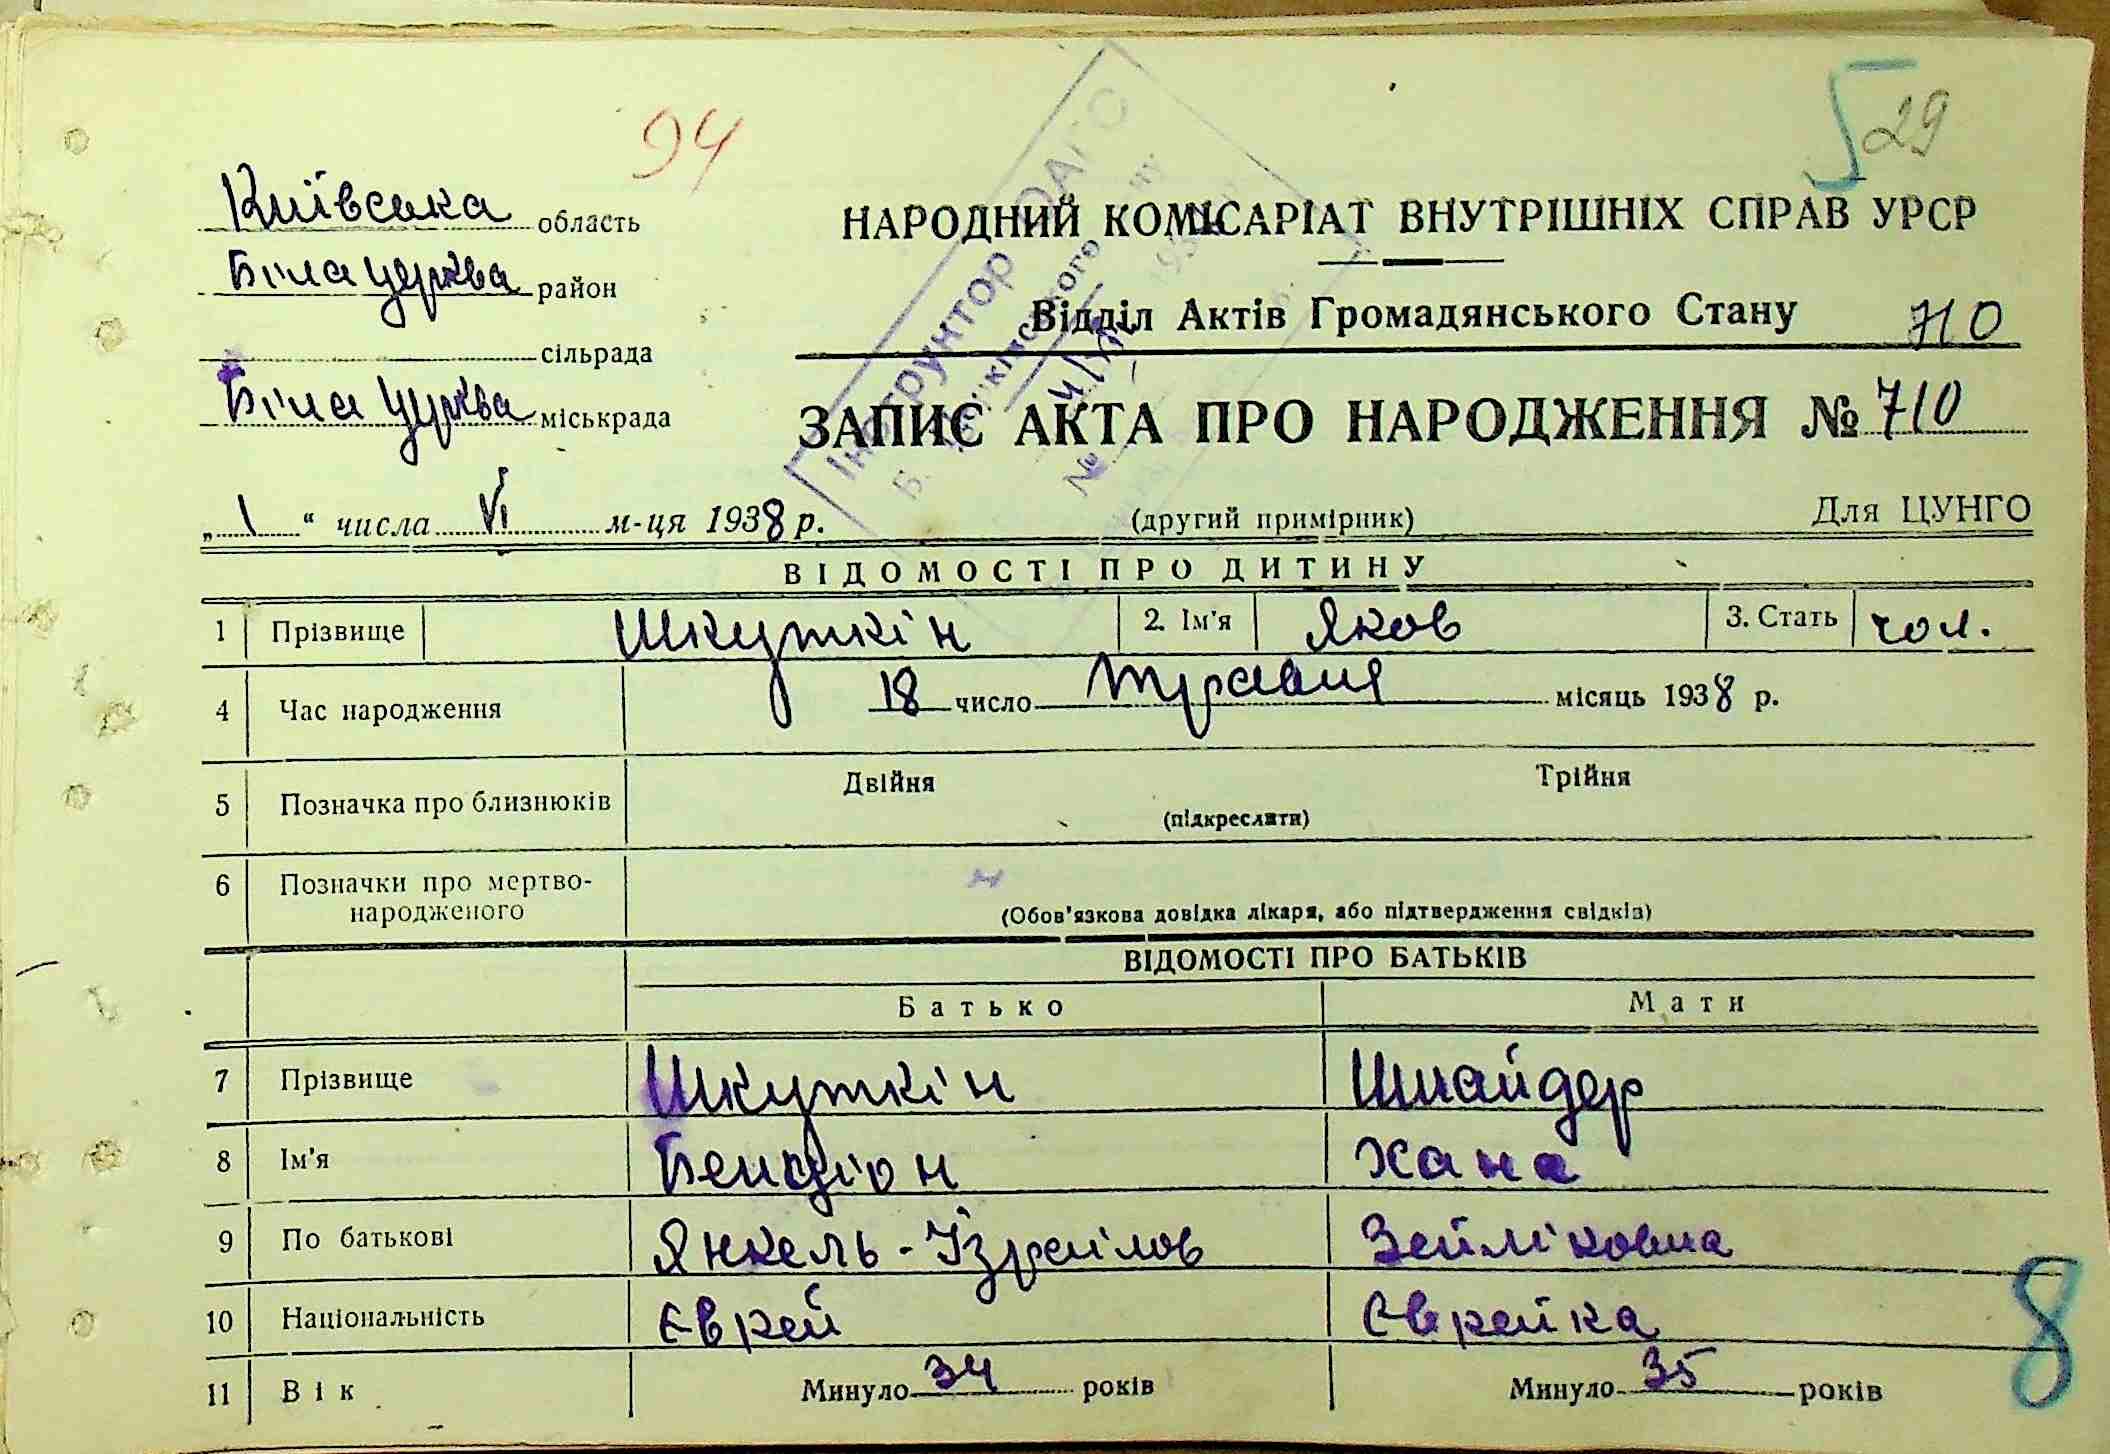 94
29
Київська область
Біла церква район
сільрада
Біла церква міськрада
Інструктор ОАГС
НАРОДНИЙ КОМІСАРІАТ ВНУТРІШНІХ СПРАВ УРСР
Відділ Актів Громадянського Стану 710
ЗАПИС АКТА ПРО НАРОДЖЕННЯ № 710
„ 1 “ числа VI м-ця 1938 р. (другий примірник) Для ЦУНГО
ВІДОМОСТІ ПРО ДИТИНУ
1 Прізвище Шкуткін 2. Ім'я Яков 3. Стать чол.
4 Час народження 18 число травня місяць 1938 р.
5 Позначка про близнюків Двійня Трійня
(підкреслити)
6 Позначки про мертво-
народженого (Обов'язкова довідка лікаря, або підтвердження свідків)
ВІДОМОСТІ ПРО БАТЬКІВ
Батько Мати
7 Прізвище Шкуткін Шнайдер
8 Ім'я Бенціон Хана
9 По батькові Янкель-Ізраілов Зейліковна
10 Національність Єврей Єврейка
11 Вік Минуло 34 років Минуло 35 років
8